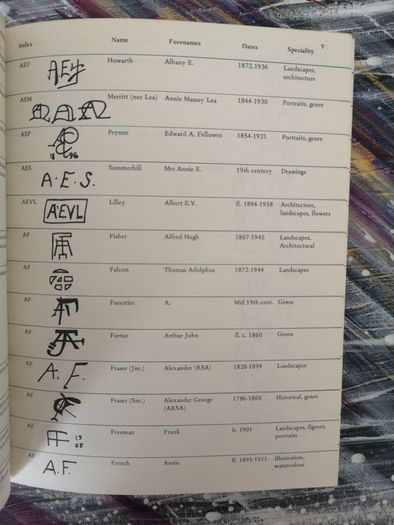 7
Index Name Forenames Dates Speciality
AEF Howarth Albany E. 1872.1936 Landscapes,
architecture
AEM Merritt (nee Lea) Annie Massey Lea 1844-1930 Portraits, genre
AEP Prynne Edward A. Fellowes 1854-1921 Portraits, genre
18 96
AES Summerhill Mrs Annie E. 19th century Drawings
A·E·S.
AEVL Lilley Albert E.V. fl. 1894-1958 Architecture,
A·EVL landscapes, flowers
AF Fisher Alfred Hugh 1867-1945 Landscapes,
Architectural
AF Falcon Thomas Adolphus 1872-1944 Landscapes
AF Forestier A. Mid 19th cent. Genre
AF Fortur Arthur John fl. c. 1860 Genre
AF Fraser (Jnr.) Alexander (RSA) 1828-1899 Landscapes
A. F.
AF Fraser (Snr.) Alexander George 1786-1865 Historical, genre
(ARSA)
AF Freeman Frank b. 1901 Landscapes, figures,
19 portraits
28
AF French Annie fl. 1893-1911 Illustration,
A.F. watercolour